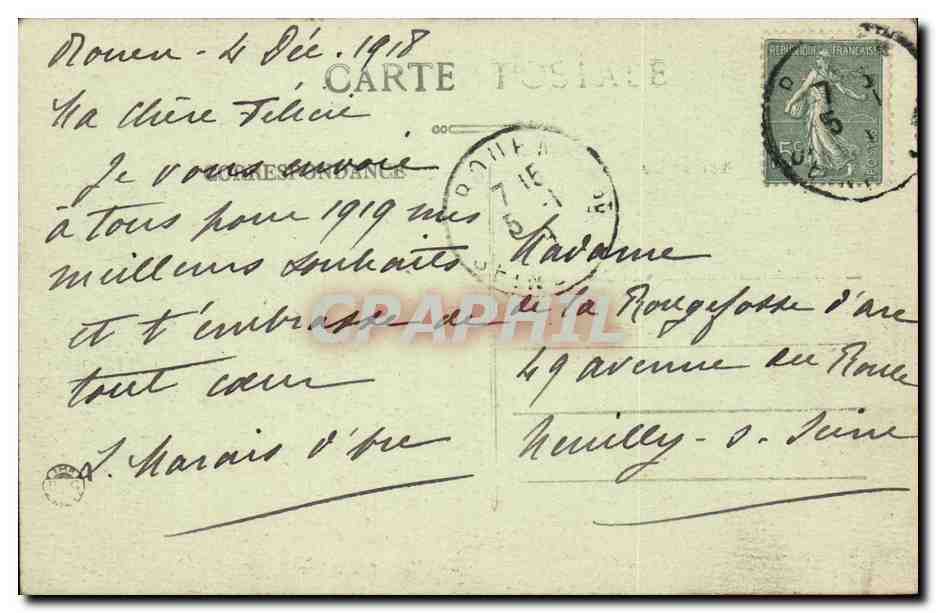 Rouen - 4 Déc. 1918
CARTE POSTALE
Ma chère Félicie
CORRESPONDANCE
Je vous envoie
à tous pour 1919 mes
meilleurs souhaits
et t'embrasse de
tout cœur
S. Marais d'
Madame
de la Rougefosse d'arc
49 avenue du Roule
Neuilly - s. Seine
REPUBLIQUE FRANÇAISE
15c
POSTES
ROUEN
7 15
5
SEINE
CPAPHIL